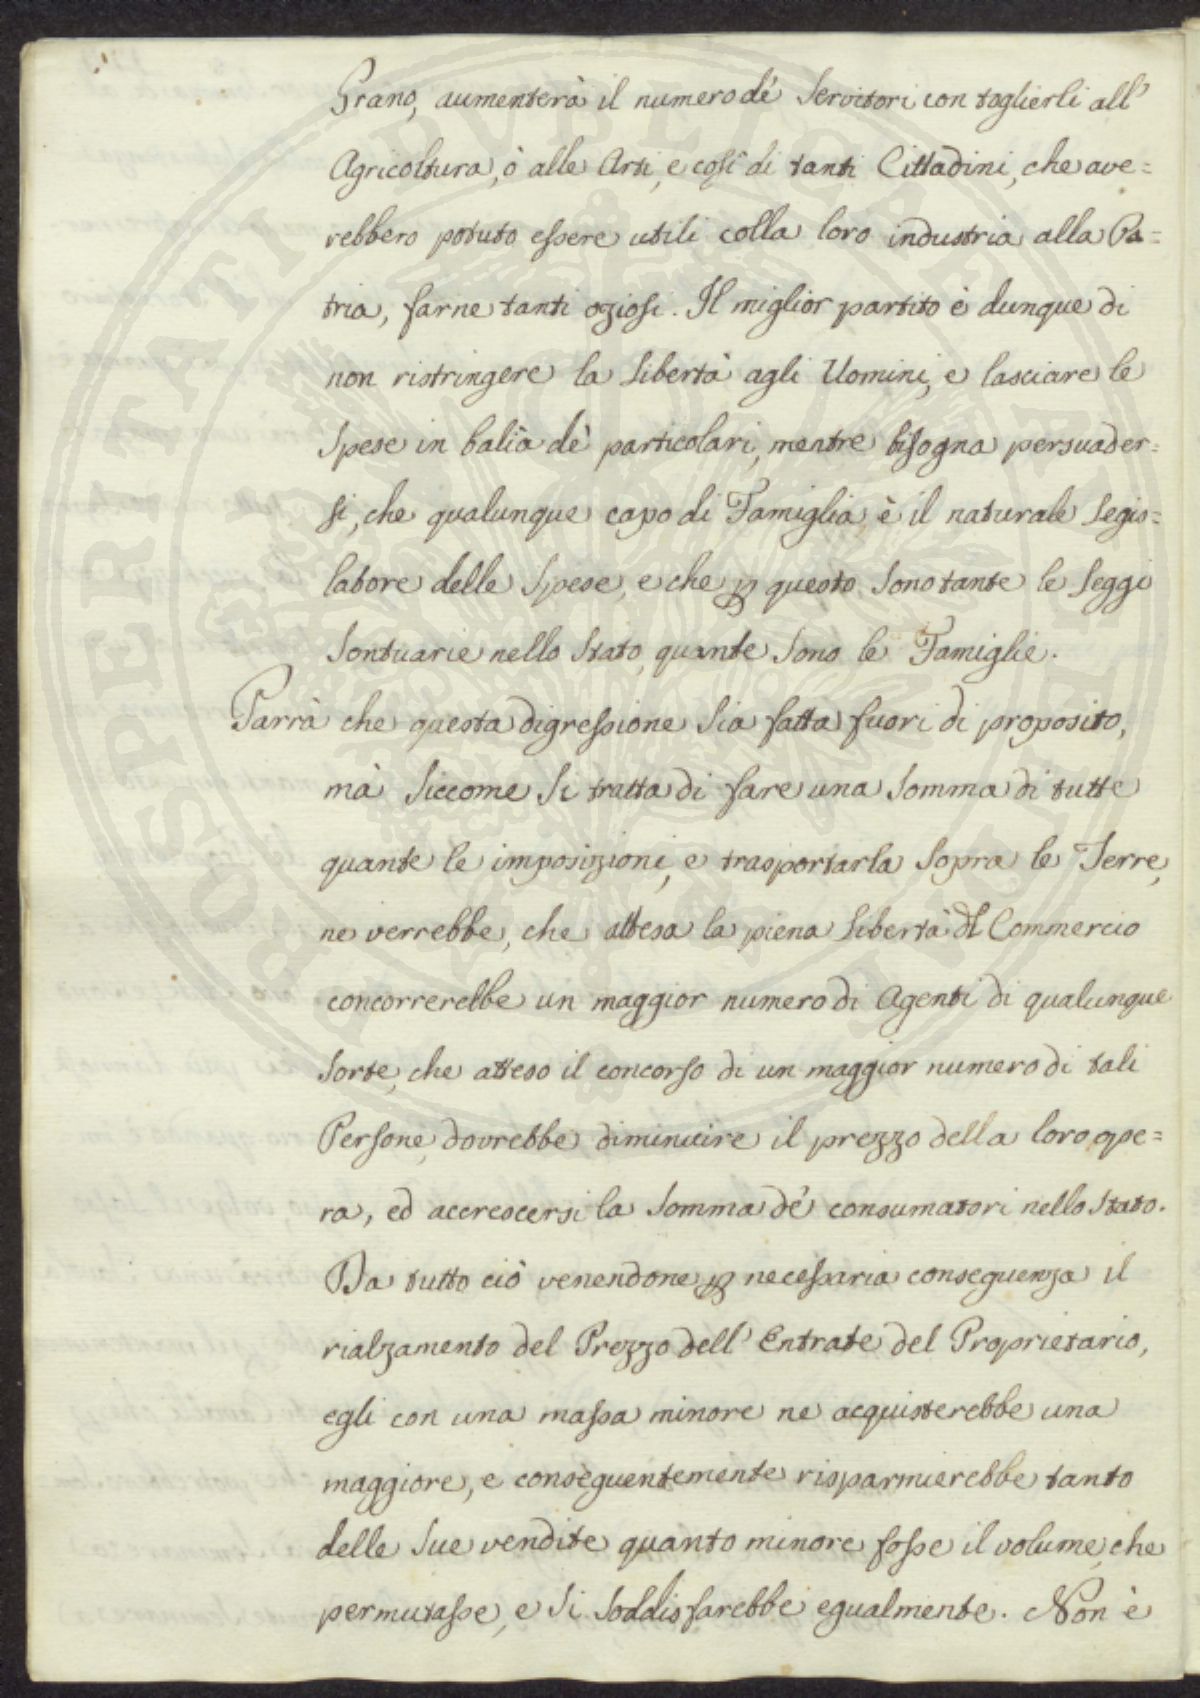 Grano, aumenterà il numero dè Servitori con toglierli all'
Agricoltura, ò alle Arti, e così di tanti Cittadini, che ave=
rebbero potuto essere utili colla loro industria alla Pa=
tria, farne tanti oziosi. Il miglior partito è dunque di
non ristringere la Libertà agli Uomini, e lasciare le
Spese in balìa dè particolari, mentre bisogna persuader=
si, che qualunque capo di Famiglia, è il naturale Legis=
latore delle Spese, e che ꝑ questo sono tante le Leggi
Sontuarie nello Stato, quante sono le Famiglie.
Parrà che questa digressione sia fatta fuori di proposito,
mà siccome si tratta di fare una somma di tutte
quante le imposizioni, e trasportarla sopra le Terre,
ne verrebbe, che attesa la piena Libertà del Commercio
concorrerebbe un maggior numero di Agenti di qualunque
sorte, che atteso il concorso di un maggior numero di tali
Persone, dovrebbe diminuire il prezzo della loro ope=
ra, ed accrescersi la somma dè consumatori nello Stato.
Da tutto ciò venendone ꝑ necessaria conseguenza il
rialzamento del Prezzo dell' Entrate del Proprietario,
egli con una massa minore ne acquisterebbe una
maggiore, e consèguentemente risparmierebbe tanto
delle sue vendite quanto minore fosse il volume, che
permutasse, e si soddisfarebbe egualmente. Non è
PROSPERITATI PVBLICAE